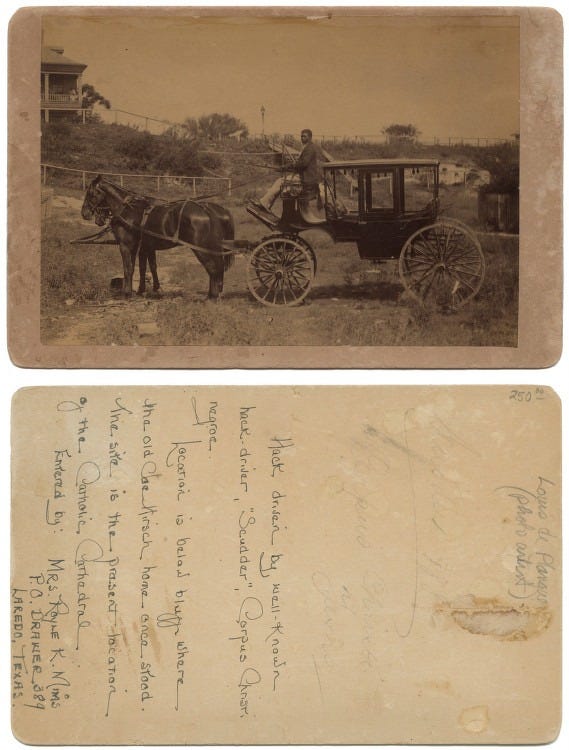 250 01
Louis de Planque
(photo artist)
Hack driven by well-known
hack driver, "Scudder", Corpus Christi
negroe.
Location is below bluff where
the old Coe Kirsch home once stood.
The site is the present location
of the Catholic Cathedral
Entered by: Mrs. Royle K. Mims
P.O. DRAWER 389
LAREDO, TEXAS.